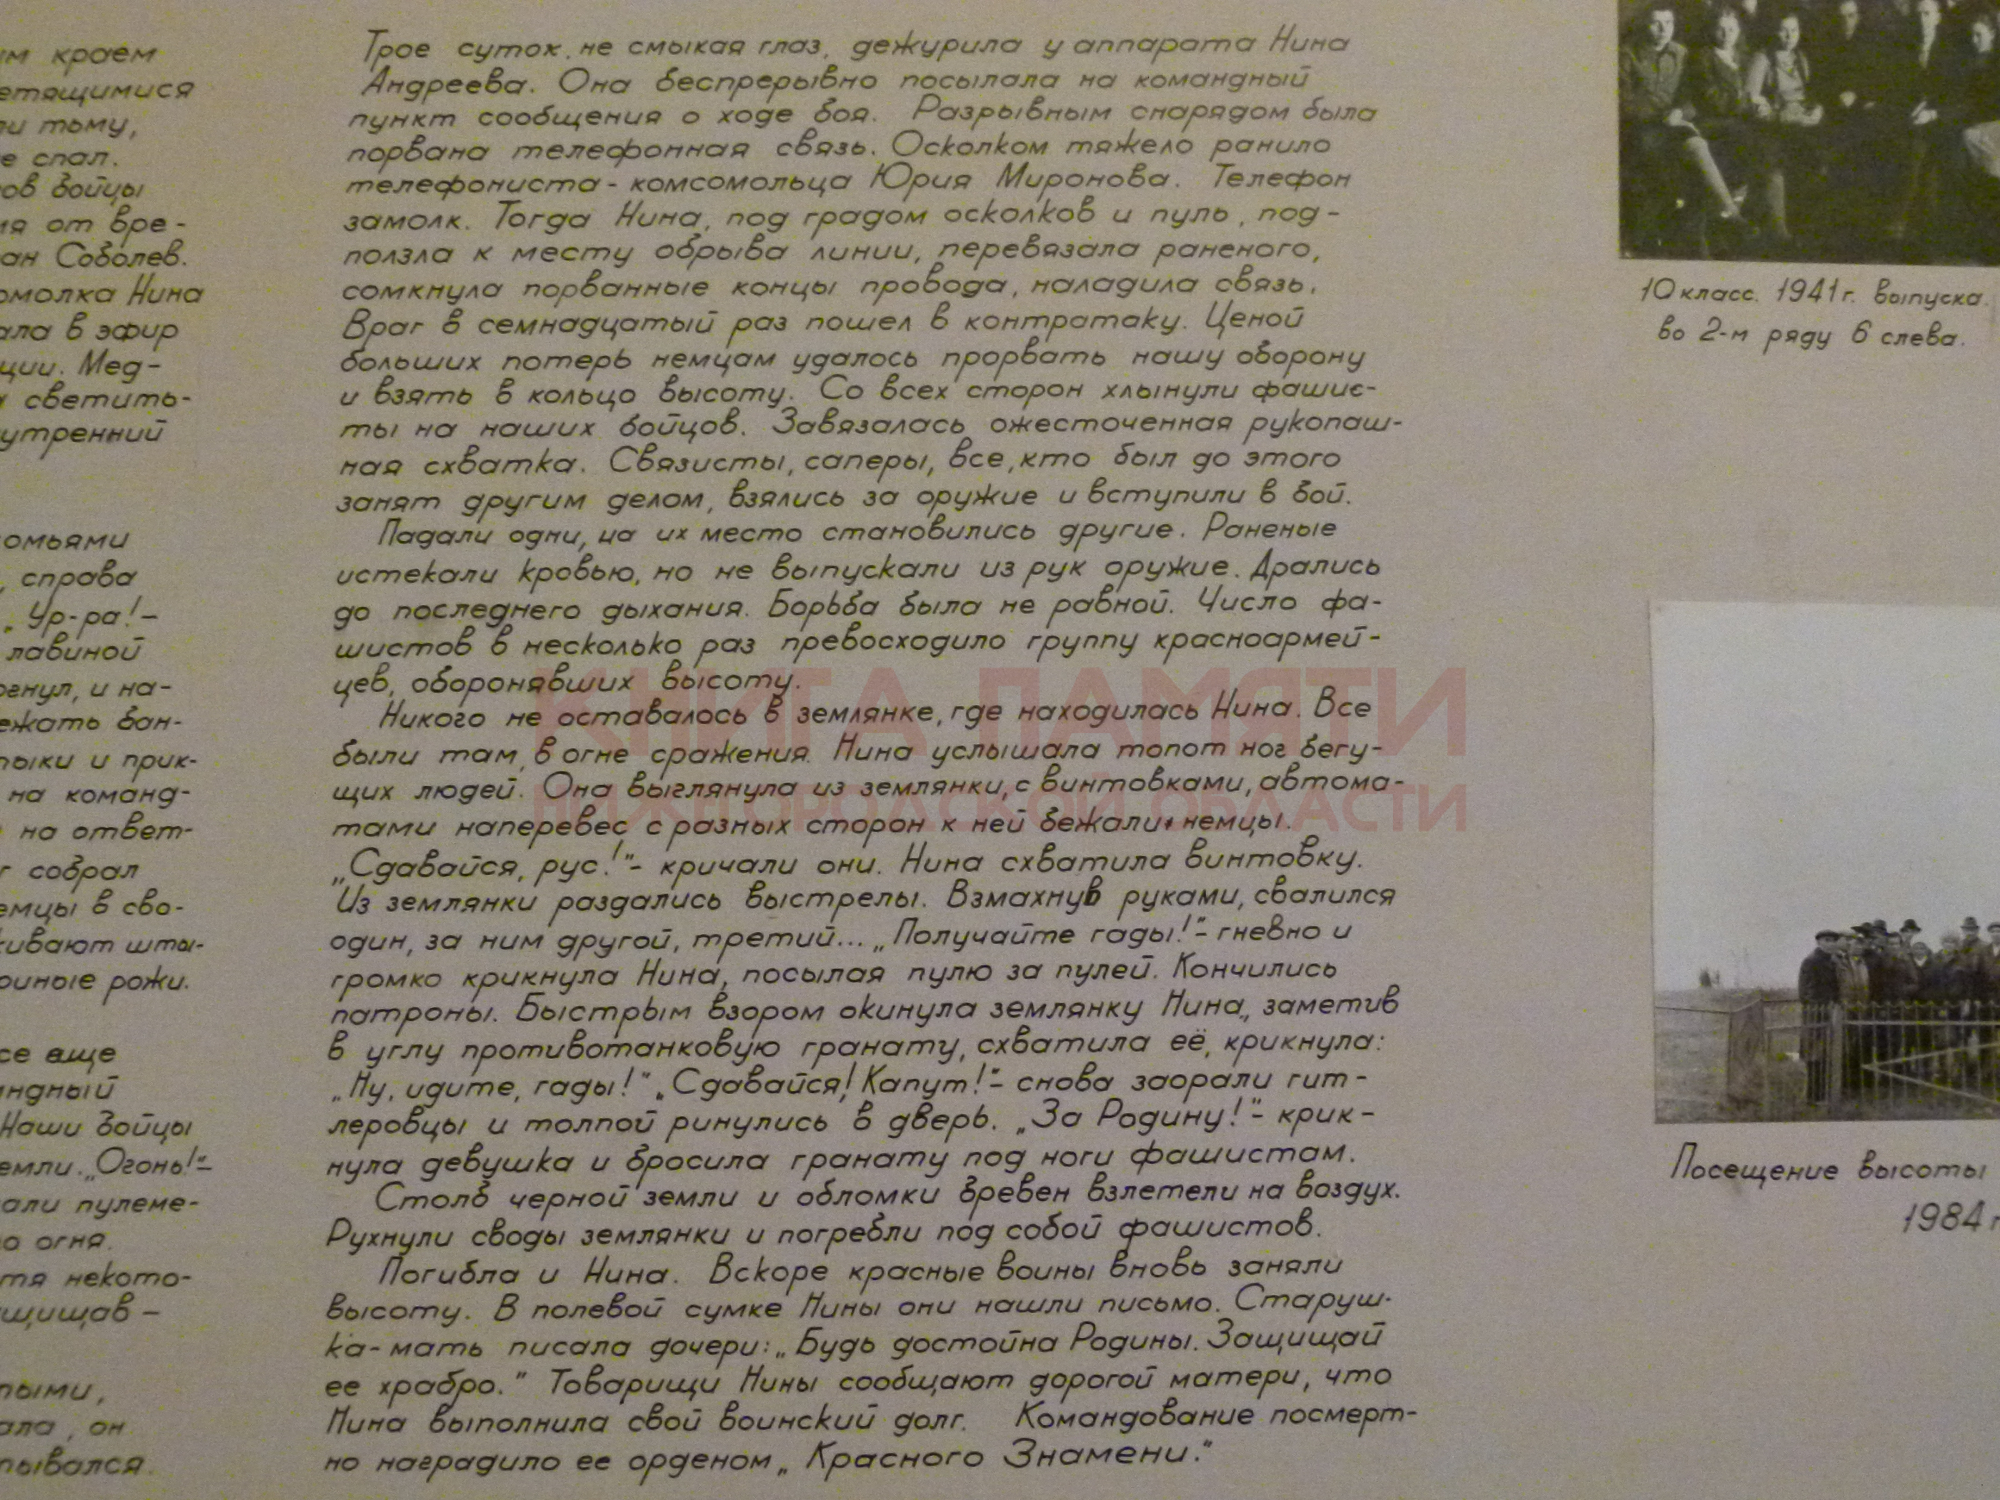 им краем
етящимися
ли тьму,
е спал.
ов бойцы
ия от вре-
ан Соболев.
омолка Нина
ала в эфир
ции. Мед-
светить-
утренний
омьями
, справа
„Ур-ра!-
лавиной
огнул, и на-
ежать бан-
тыки и прик-
на команд-
на ответ-
г собрал
емцы в сво-
кивают шты-
риные рожи.
се еще
андный
Наши бойцы
емли. „Огонь!"-
али пулеме-
о огня.
тя некото-
ащищав-
тыми,
ала, он
тывался.
Трое суток, не смыкая глаз, дежурила у аппарата Нина
Андреева. Она беспрерывно посылала на командный
пункт сообщения о ходе боя. Разрывным снарядом была
порвана телефонная связь. Осколком тяжело ранило
телефониста-комсомольца Юрия Миронова. Телефон
замолк. Тогда Нина, под градом осколков и пуль, под-
ползла к месту обрыва линии, перевязала раненого,
сомкнула порванные концы провода, наладила связь.
Враг в семнадцатый раз пошел в контратаку. Ценой
больших потерь немцам удалось прорвать нашу оборону
и взять в кольцо высоту. Со всех сторон хлынули фашис-
ты на наших бойцов. Завязалась ожесточенная рукопаш-
ная схватка. Связисты, саперы, все, кто был до этого
занят другим делом, взялись за оружие и вступили в бой.
Падали одни, на их место становились другие. Раненые
истекали кровью, но не выпускали из рук оружие. Дрались
до последнего дыхания. Борьба была не равной. Число фа-
шистов в несколько раз превосходило группу красноармей-
цев, оборонявших высоту.
Никого не оставалось в землянке, где находилась Нина. Все
были там, в огне сражения. Нина услышала топот ног бегу-
щих людей. Она выглянула из землянки, с винтовками, автома-
тами наперевес с разных сторон к ней бежали немцы.
„Сдавайся, рус!"- кричали они. Нина схватила винтовку.
Из землянки раздались выстрелы. Взмахнув руками, свалился
один, за ним другой, третий... „Получайте гады!"- гневно и
громко крикнула Нина, посылая пулю за пулей. Кончились
патроны. Быстрым взором окинула землянку Нина, заметив
в углу противотанковую гранату, схватила её, крикнула:
„Ну, идите, гады!" „Сдавайся! Капут!"- снова заорали гит-
леровцы и толпой ринулись в дверь. „За Родину!"- крик-
нула девушка и бросила гранату под ноги фашистам.
Столб черной земли и обломки бревен взлетели на воздух.
Рухнули своды землянки и погребли под собой фашистов.
Погибла и Нина. Вскоре красные воины вновь заняли
высоту. В полевой сумке Нины они нашли письмо. Старуш-
ка-мать писала дочери: „Будь достойна Родины. Защищай
ее храбро." Товарищи Нины сообщают дорогой матери, что
Нина выполнила свой воинский долг. Командование посмерт-
но наградило ее орденом „Красного Знамени."
КНИГА ПАМЯТИ
НИЖЕГОРОДСКОЙ ОБЛАСТИ
10 класс. 1941 г. выпуска.
во 2-м ряду 6 слева.
Посещение высоты
1984 г